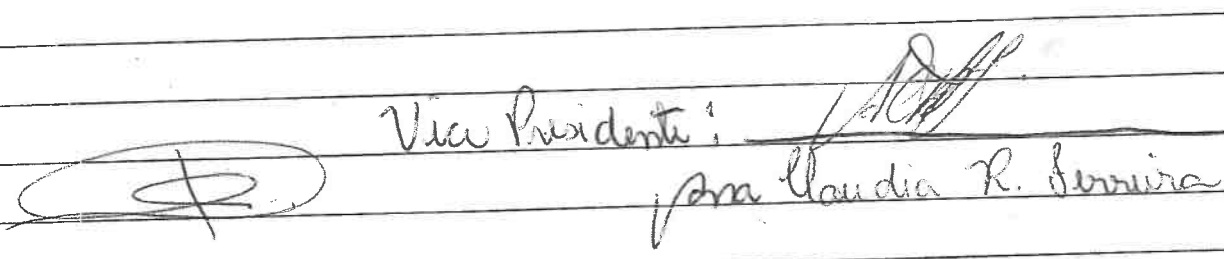 Vice Presidente:
Ana Claudia R. Ferreira